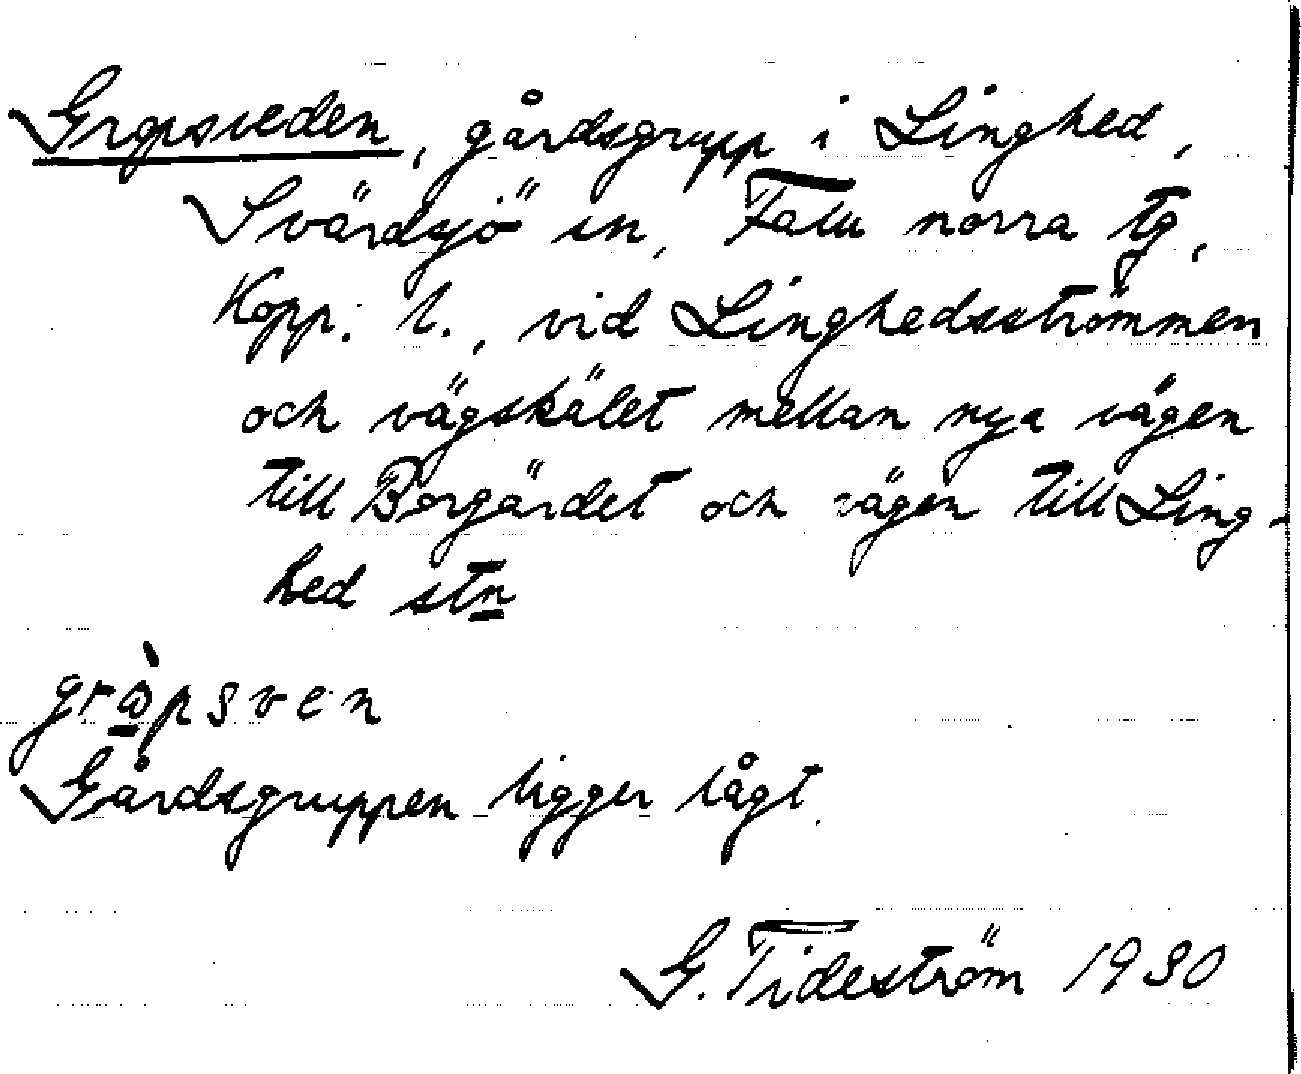 Gropsveden, gårdsgrupp i Linghed,
Svärdsjö sn, Falu norra tg,
Kopp. l., vid Linghedsströmmen
och vägskälet mellan nya vägen
till Borgärdet och vägen till Ling-
hed stn
grò̠psven
Gårdsgruppen ligger lågt.
G. Tideström 1930